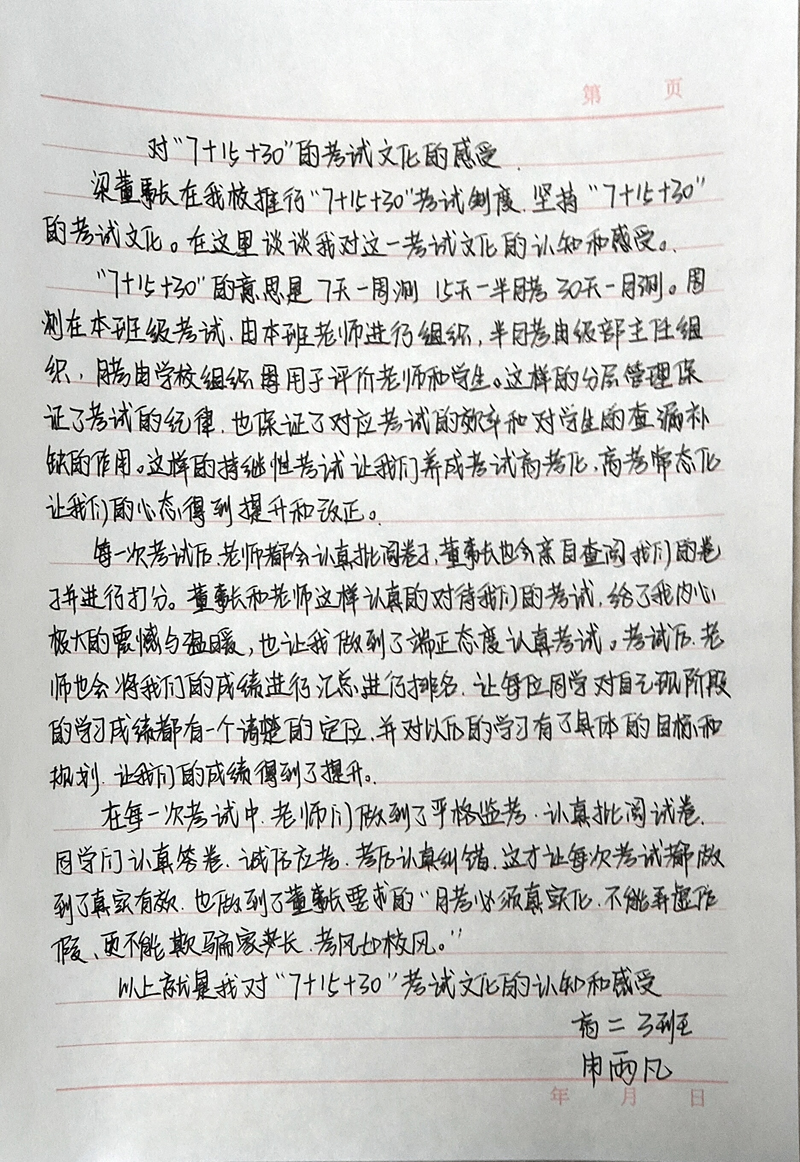 第 页
对“7+15+30”的考试文化的感受.
梁董事长在我校推行“7+15+30”考试制度,坚持“7+15+30”
的考试文化。在这里谈谈我对这一考试文化的认知和感受。.
“7+15+30”的意思是7天一周测 15天一半月考 30天一月测。周
测在本班级考试,由本班老师进行组织,半月考由级部主任组
织,月考由学校组织 用于评价老师和学生。这样的分层管理保
证了考试的纪律,也保证了对应考试的效率和对学生的查漏补
缺的作用。这样的持继性考试让我们养成考试高考化,高考常态化
让我们的心态得到提升和改正。
每一次考试后,老师都会认真批阅卷子,董事长也会亲自查阅我们的卷
子并进行打分。董事长和老师这样认真的对待我们的考试,给了我内心
极大的震憾与温暖,也让我做到了端正态度认真考试。考试后,老
师也会将我们的成绩进行汇总进行排名,让每位同学对自己现阶段
的学习成绩都有一个清楚的定位,并对以后的学习有了具体的目标和
规划,让我们的成绩得到了提升。
在每一次考试中,老师们做到了严格监考,认真批阅试卷,
同学们认真答卷,诚信应考,考后认真纠错,这才让每次考试都做
到了真实有效,也做到了董事长要求的“月考必须真实化,不能弄虚作
假,更不能欺骗家长,考风如校风。”
以上就是我对“7+15+30”考试文化的认知和感受
高二 3班
申雨凡
年 月 日